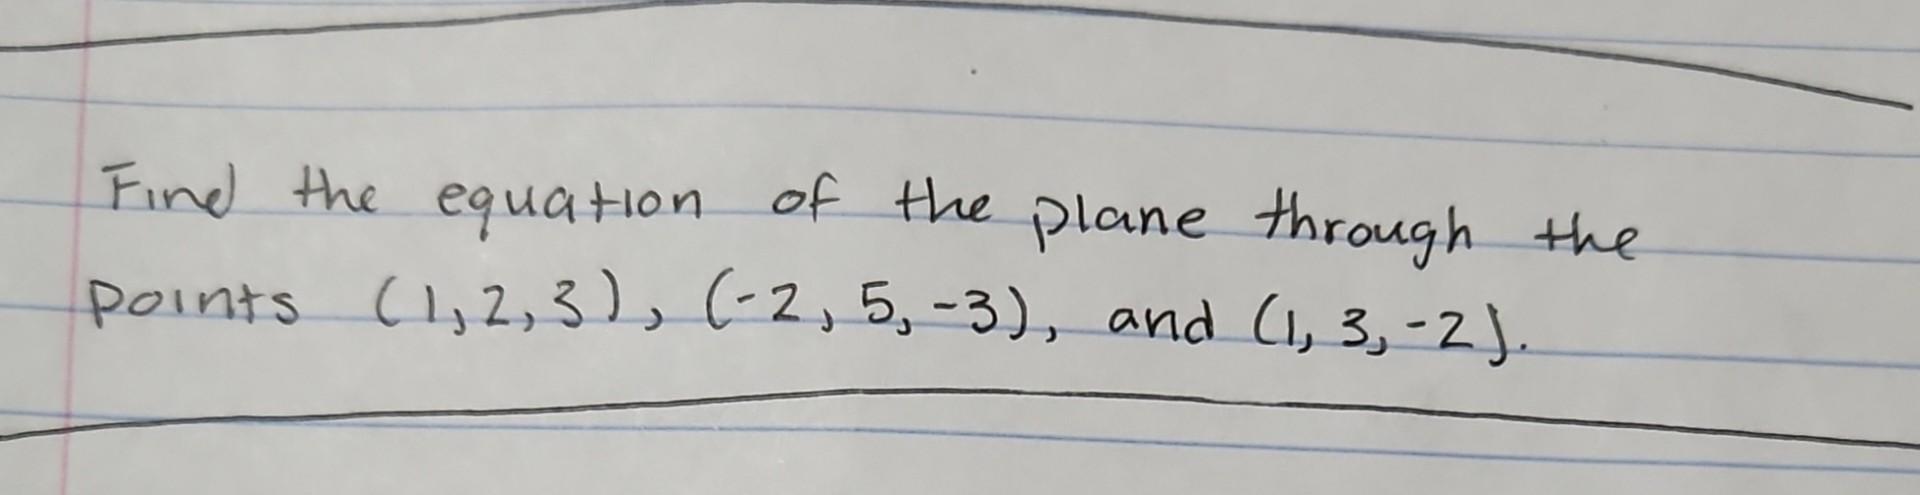 Find the equation of the plane through the
points (1,2,3), (-2, 5, -3), and (1, 3, -2).